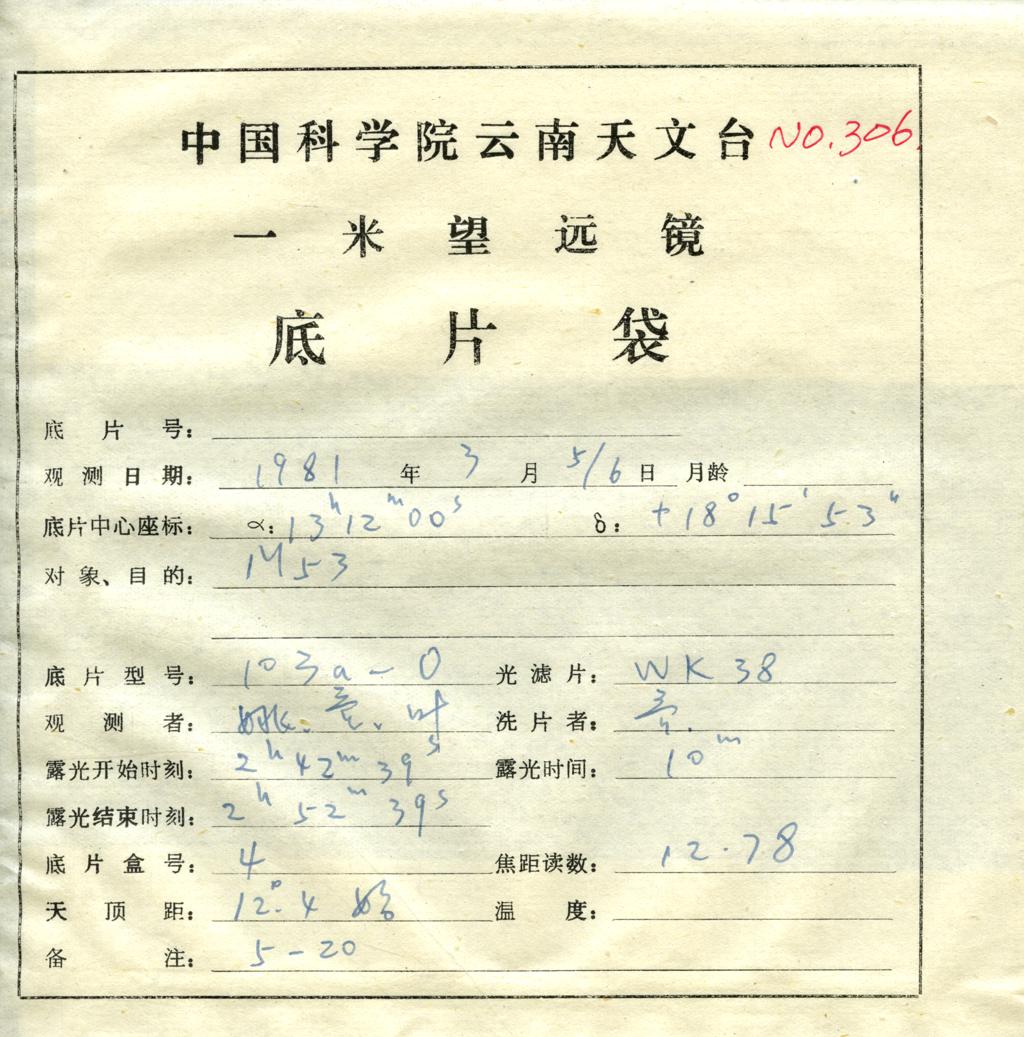 中国科学院云南天文台 NO.306.
一米望远镜
底片袋
底片号：
观测日期： 1981 年 3 月 5/6 日 月龄
底片中心座标： α: 13h12m00s δ: +18°15′53″
对象、目的： M53
底片型号： 103a-O 光滤片： WK38
观测者： 姚. . 叶 洗片者：
露光开始时刻： 2h 42m 39s 露光时间： 10m
露光结束时刻： 2h 52m 39s
底片盒号： 4 焦距读数： 12.78
天顶距： 12°.4 始 温度：
备注： 5-20